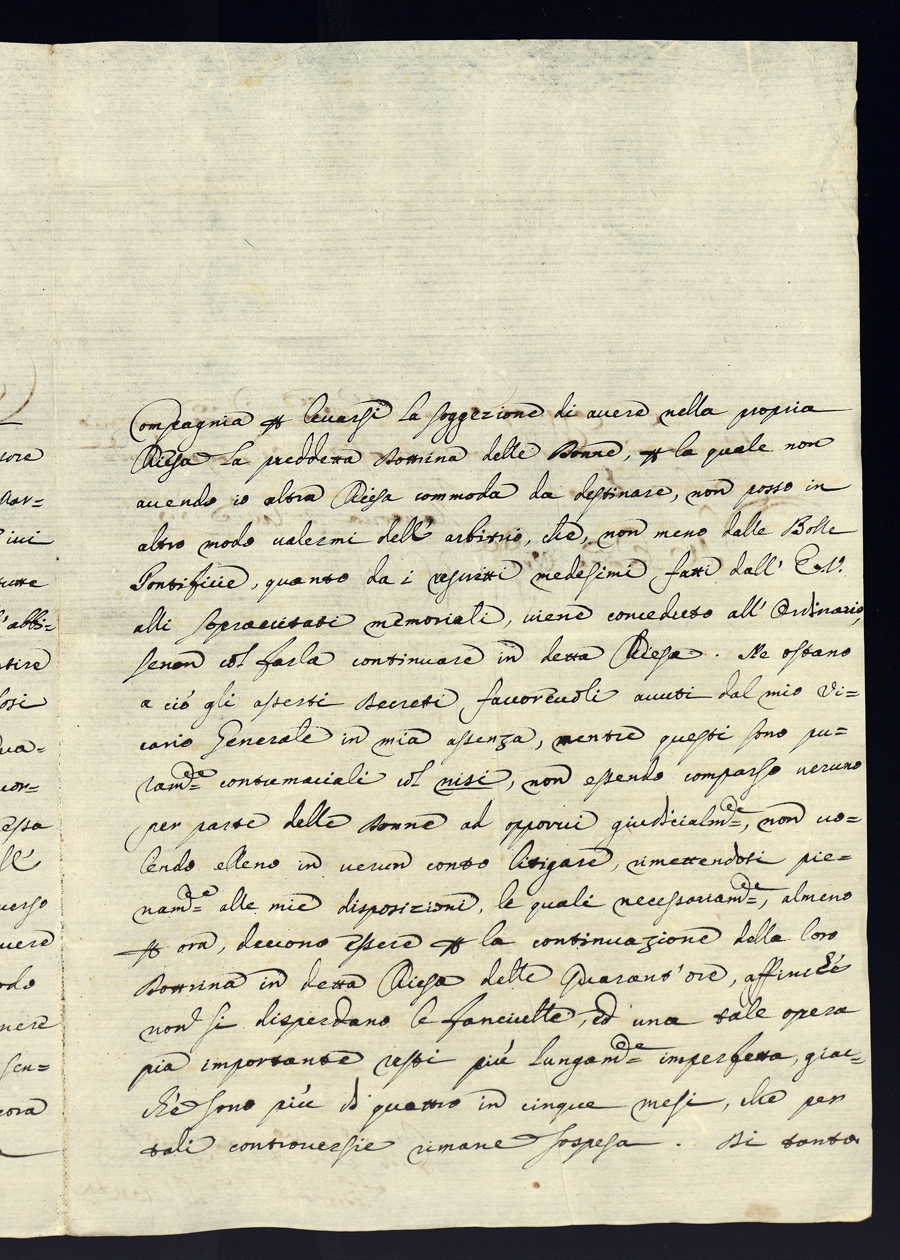 Compagnia ꝑ levarsi la soggezione di avere nella propria
Chiesa la predetta Dottrina delle Donne, ꝑ la quale non
avendo io altra Chiesa commoda da destinare, non posso in
altro modo valermi dell' arbitrio, che, non meno dalle Bolle
Pontificie, quanto da i rescritti medesimi fatti dall' E.V.
alli sopraccitati memoriali, viene conceduto all' Ordinario,
senon col farla continuare in detta Chiesa. Ne ostano
a ciò gli asserti Decreti favorevoli avuti dal mio Vi=
cario Generale in mia assenza, mentre questi sono pu=
ramde= contumaciali col nisi, non essendo comparso veruno
per parte delle Donne ad opporvi giudicialmte=, non vo=
lendo elleno in verun conto litigare, rimettendosi pie=
namde= alle mie disposizioni, le quali necessariamde=, almeno
ꝑ ora, devono essere ꝑ la continuazione della loro
Dottrina in detta Chiesa delle Quarant' ore, affinche'
non si disperdano le fanciulle, ed una tale opera
pia importante resti più lungamde= imperfetta, giac=
chè sono più di quattro in cinque mesi, che per
tali controversie rimane sospesa. Di tanto
sore
tutte
l'abbi=
rtire
essa
verso
vere
sen=
cora